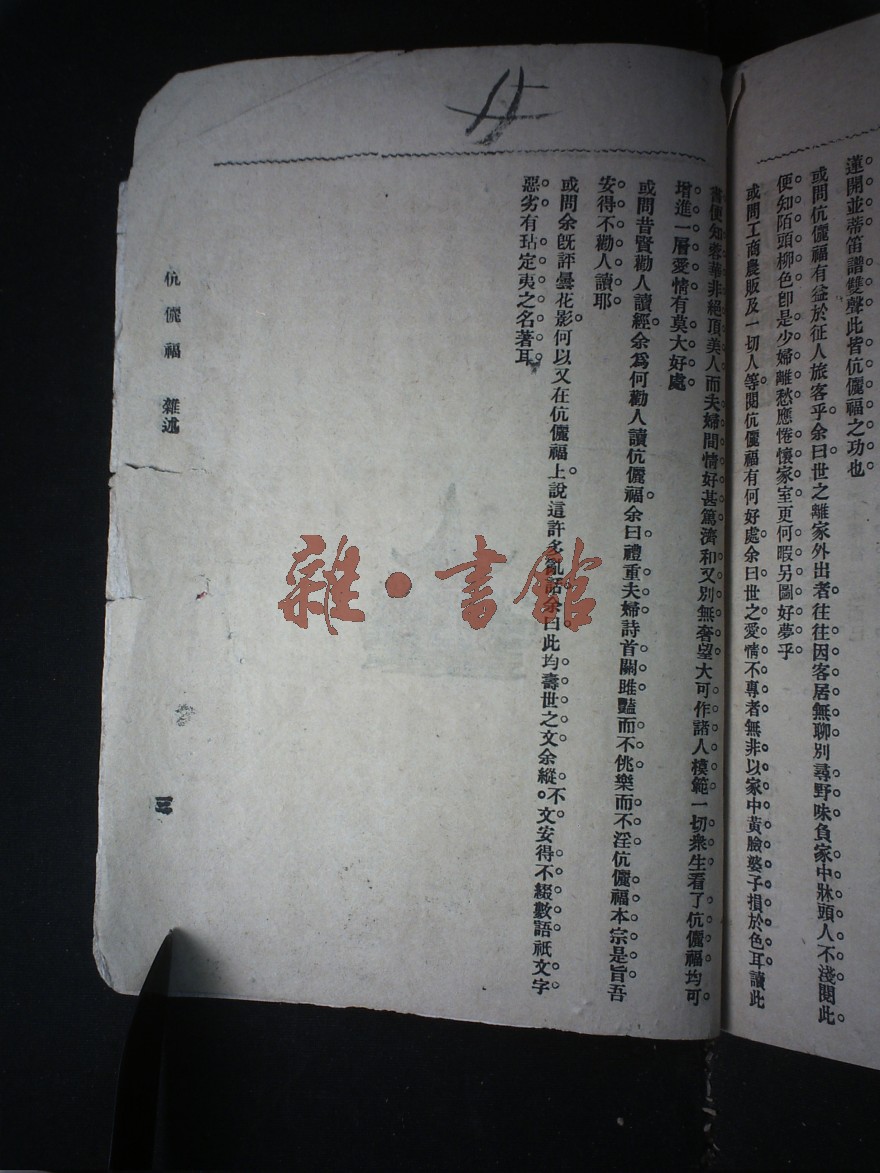 蓮開並蒂笛譜雙聲此皆伉儷福之功也
或問伉儷福有益於征人旅客乎余曰世之離家外出者往往因客居無聊別尋野味負家中牀頭人不淺閱此
便知陌頭柳色卽是少婦離愁應惓懷家室更何暇另圖好夢乎
或問工商農販及一切人等閱伉儷福有何好處余曰世之愛情不專者無非以家中黃臉婆子損於色耳讀此
書便知蓉華非絕頂美人而夫婦間情好甚篤濟和又別無奢望大可作諸人模範一切衆生看了伉儷福均可
增進一層愛情有莫大好處
或問昔賢勸人讀經余爲何勸人讀伉儷福余曰禮重夫婦詩首關雎豔而不佻樂而不淫伉儷福本宗是旨吾
安得不勸人讀耶
或問余旣評曇花影何以又在伉儷福上說這許多亂話余曰此均壽世之文余縱不文安得不綴數語祇文字
惡劣有玷定夷之名著耳
伉儷福 雜述
三
雜·書館